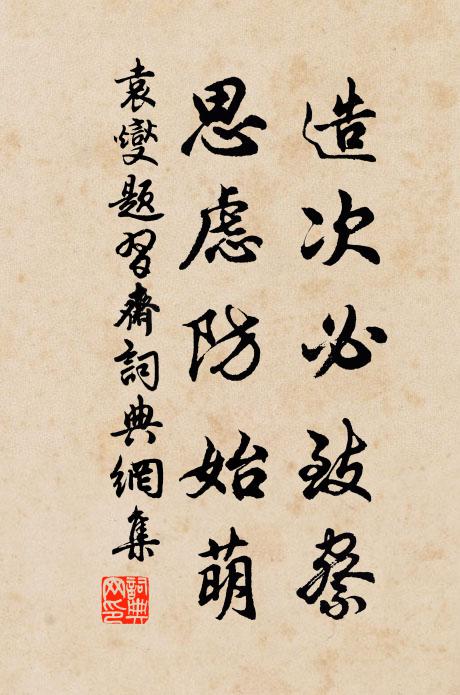 造次必致察
思慮防始萌
袁燮題習齋詞典網集
詞典网印